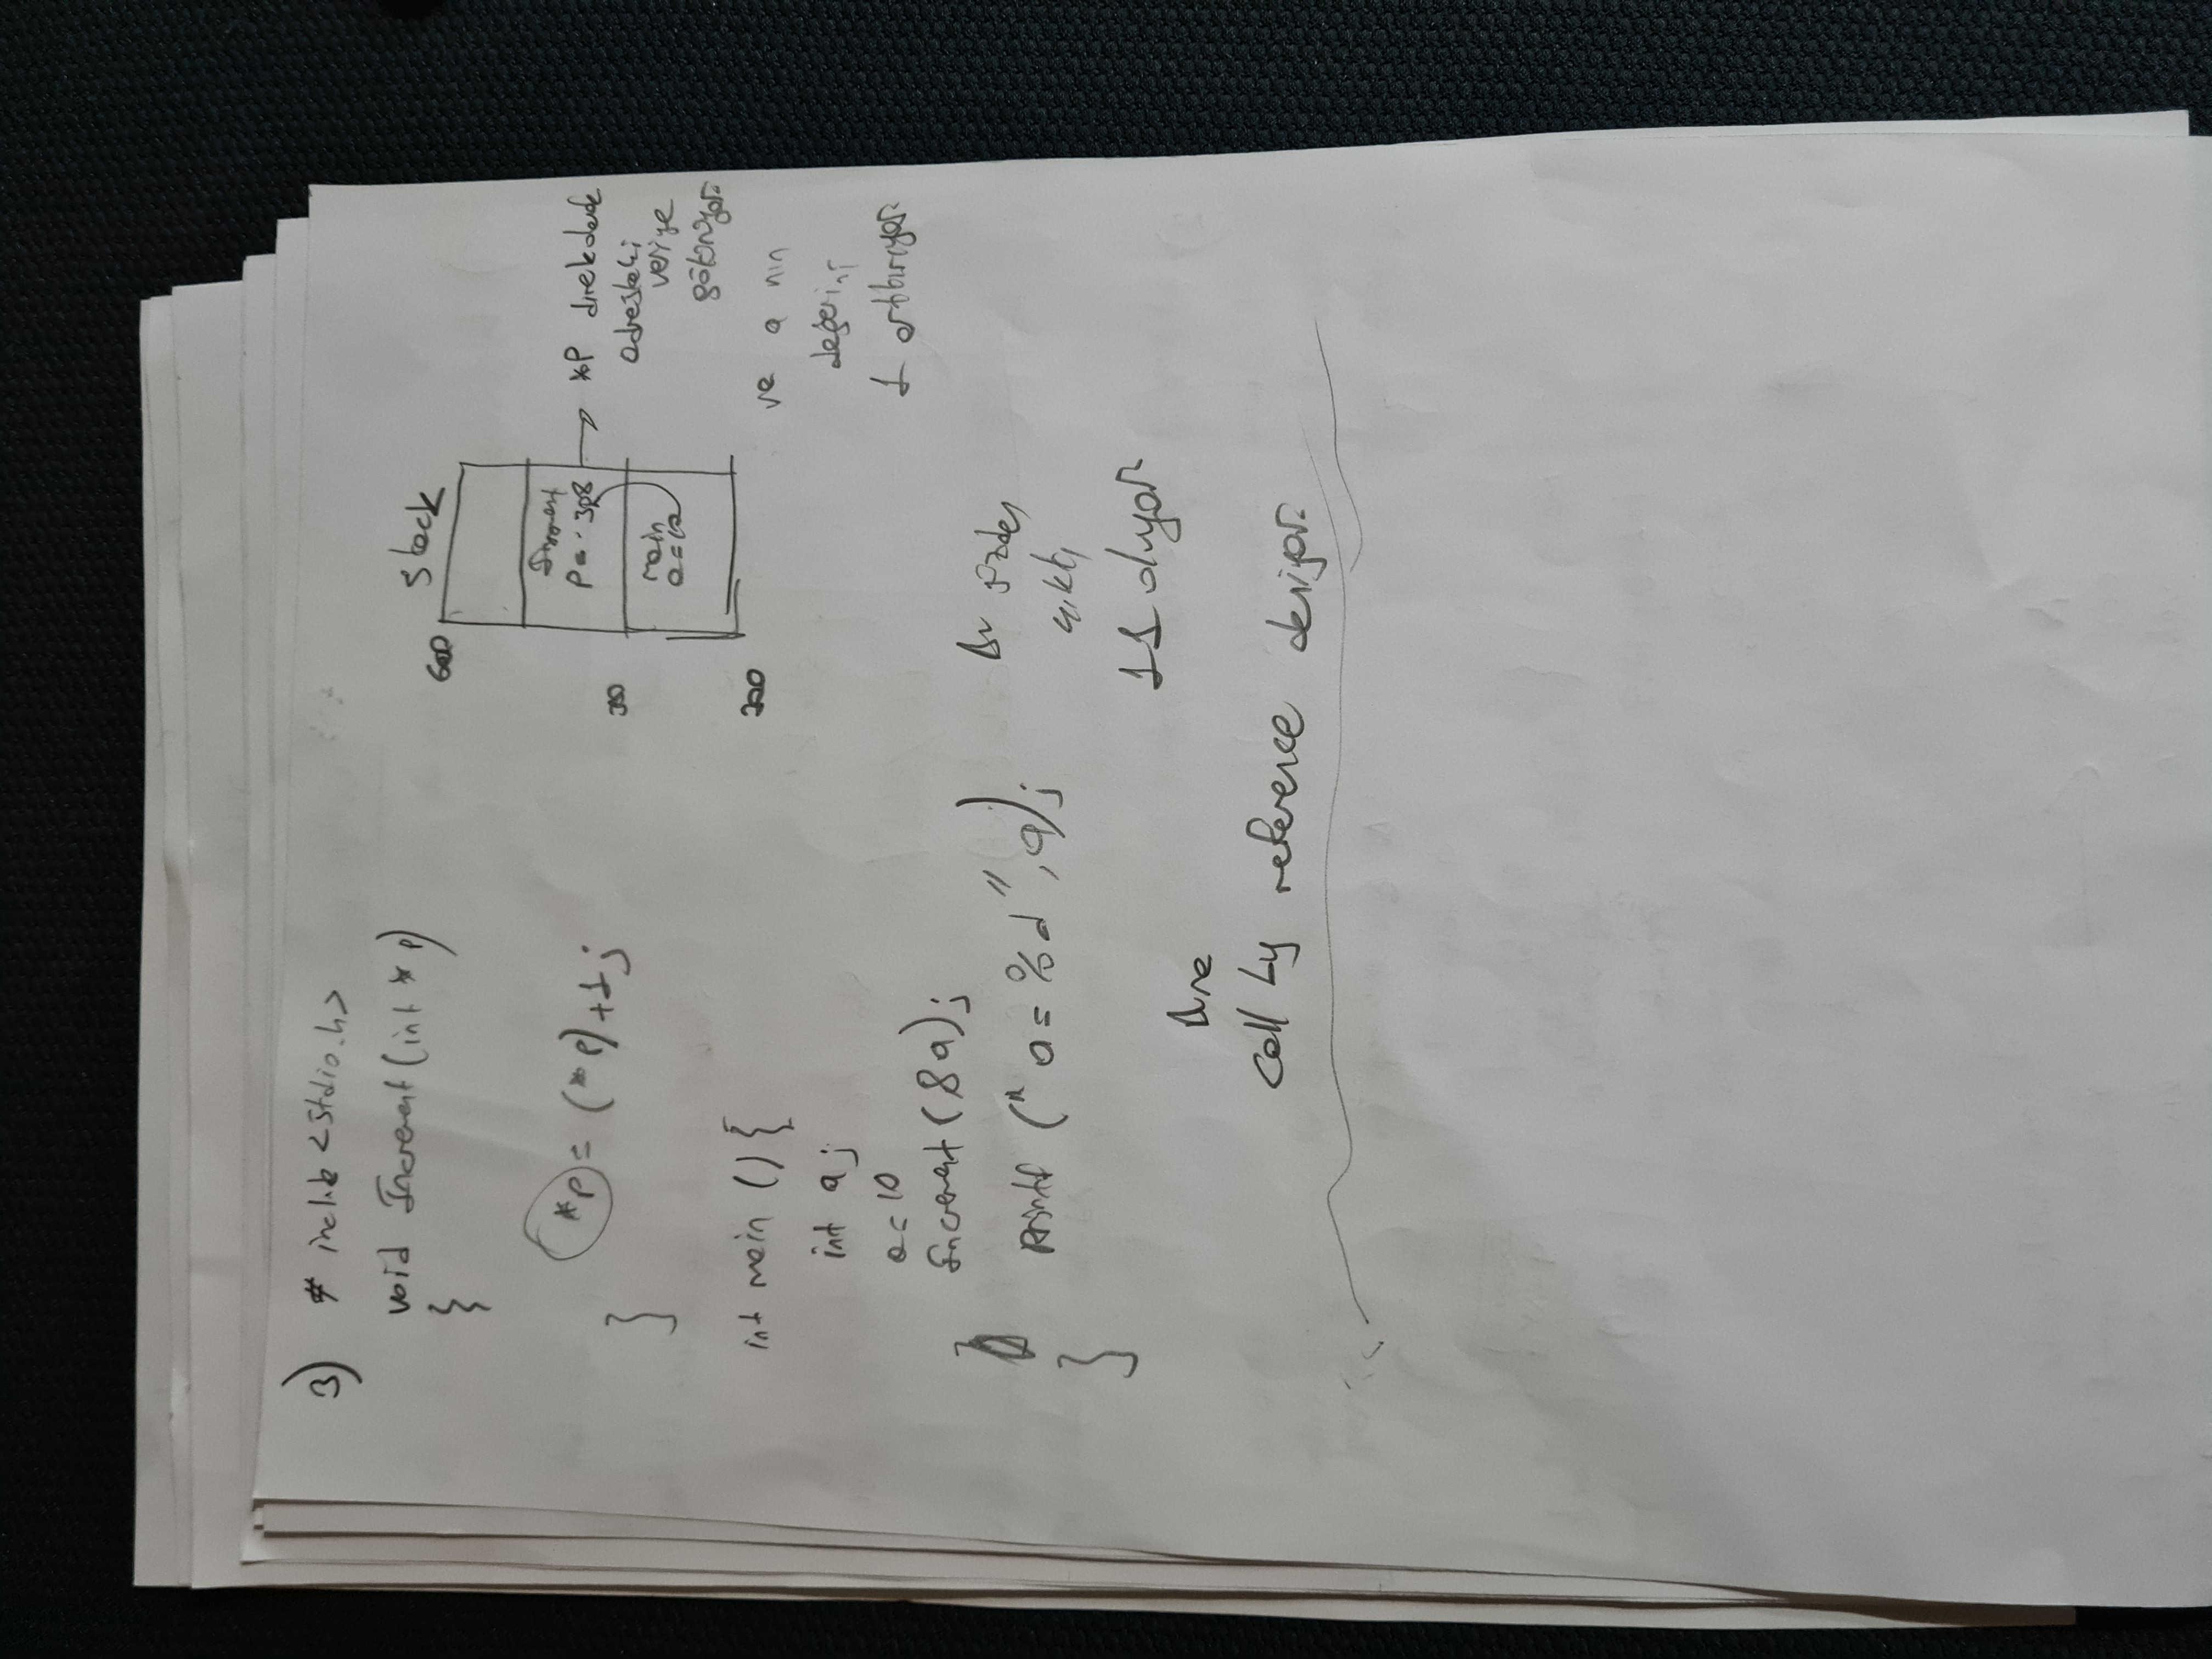 3) # include <stdio.h>
void Increment (int * p)
{
*p = (*p) +1;
}
int main () {
int a;
a = 10
Increment (&a);
Printf (" a = %d ", a);
}
Stack
600
Increment
P = 308
main
a = 10
*P direk olarak
adresteki
veriye
götürüyor.
ve a nın
değerini
1 arttırıyor.
Bu yüzden
çıktı
11 oluyor
Buna
Call by reference deniyor.